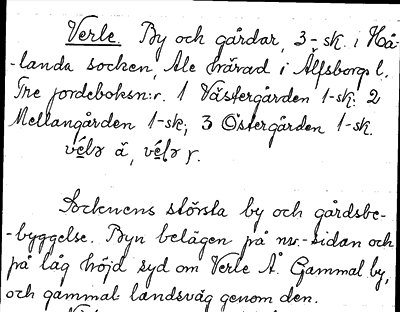 Verle. By och gårdar, 3-sk. i Hå-
-landa socken, Ale härad i Älfsborgs l.
Tre jordeboksn:r. 1 Västergården 1-sk; 2
Mellangården 1-sk; 3 Östergården 1-sk.
Socknens största by och gårdsbe-
-byggelse. Byn belägen på nv.-sidan och
på låg höjd syd om Verle Å. Gammal by,
och gammal landsväg genom den.